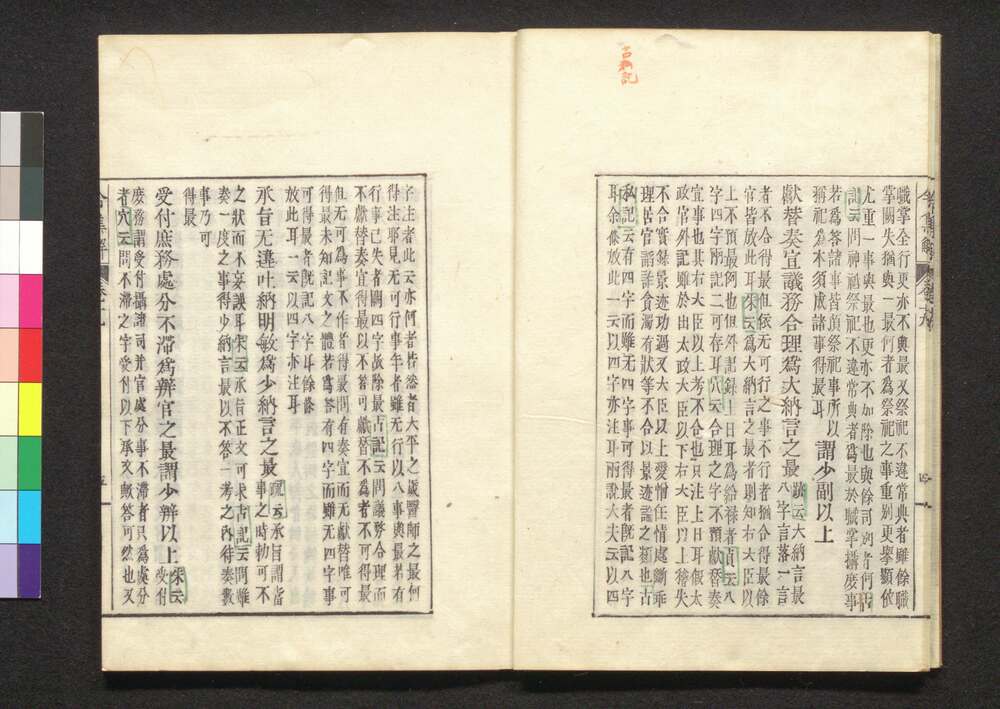 職掌全行更亦不與最又祭祀不違常典者雖餘職
掌闕失猶與一最何者為祭祀之事重別更擧顯依
尤重一事與最也更亦不加除也與餘司別者何古
記云問神祇祭祀不違常典者為最於職掌攝庶事
若為答諸事皆須祭祀事所以
稱祀為本須成諸事得最耳　謂少副以上
獻替奏宜議務合理為大納言之最　跡云大納言最
八字言落一言
者不合得最但依无可行之事不行者猶合得最餘
官皆放此耳朱云為大納言之最者則知右大臣以
上不預最例也但外記錄上日耳為給祿者貞云八
字四字別記二可存耳穴云合理之字不預獻替奏
宜事也其右大臣以上考不合也只注上日耳假太
政官外記雖於出太政大臣以下右大臣以上徐失
不合實錄景迹功過又大臣以上愛憎任情處斷乖
理居官諂詐貪濁有狀等不合以景迹論之類也古
私記云有四字而雖无四字事可得最者既記八字
耳余條放此一云以四字亦注耳兩說大夫云以四
字注者此云亦何者若然者大平之歲醫師之最何
得注耶見无可行事年者雖无行以八事與最若有
行事已失者關四字故除最古記云問議務合理而
不獻替奏宜得最以不答可獻替不為者不可得最
但无可為事不作者得最問有奏宜而无獻替唯可
得最未知記文之體若為答有四字而雖无四字事
可得最者既記八字耳餘條
放此耳一云以四字亦注耳
承旨无違吐納明敏為少納言之最　跡云承旨謂皆
事之時勅可不
之狀而不妄誤耳朱云承旨正文可求古記云問雖
奏一度之事得少納言最以不答一考之內待奏數
事乃可
得最
受付庶務處分不滯為辨官之最謂少辨以上　朱云
受付
庶務謂受付攝諸司并官處分事不滯者只為處分
者穴云問不滯之字受付以下承文歟答可然也又